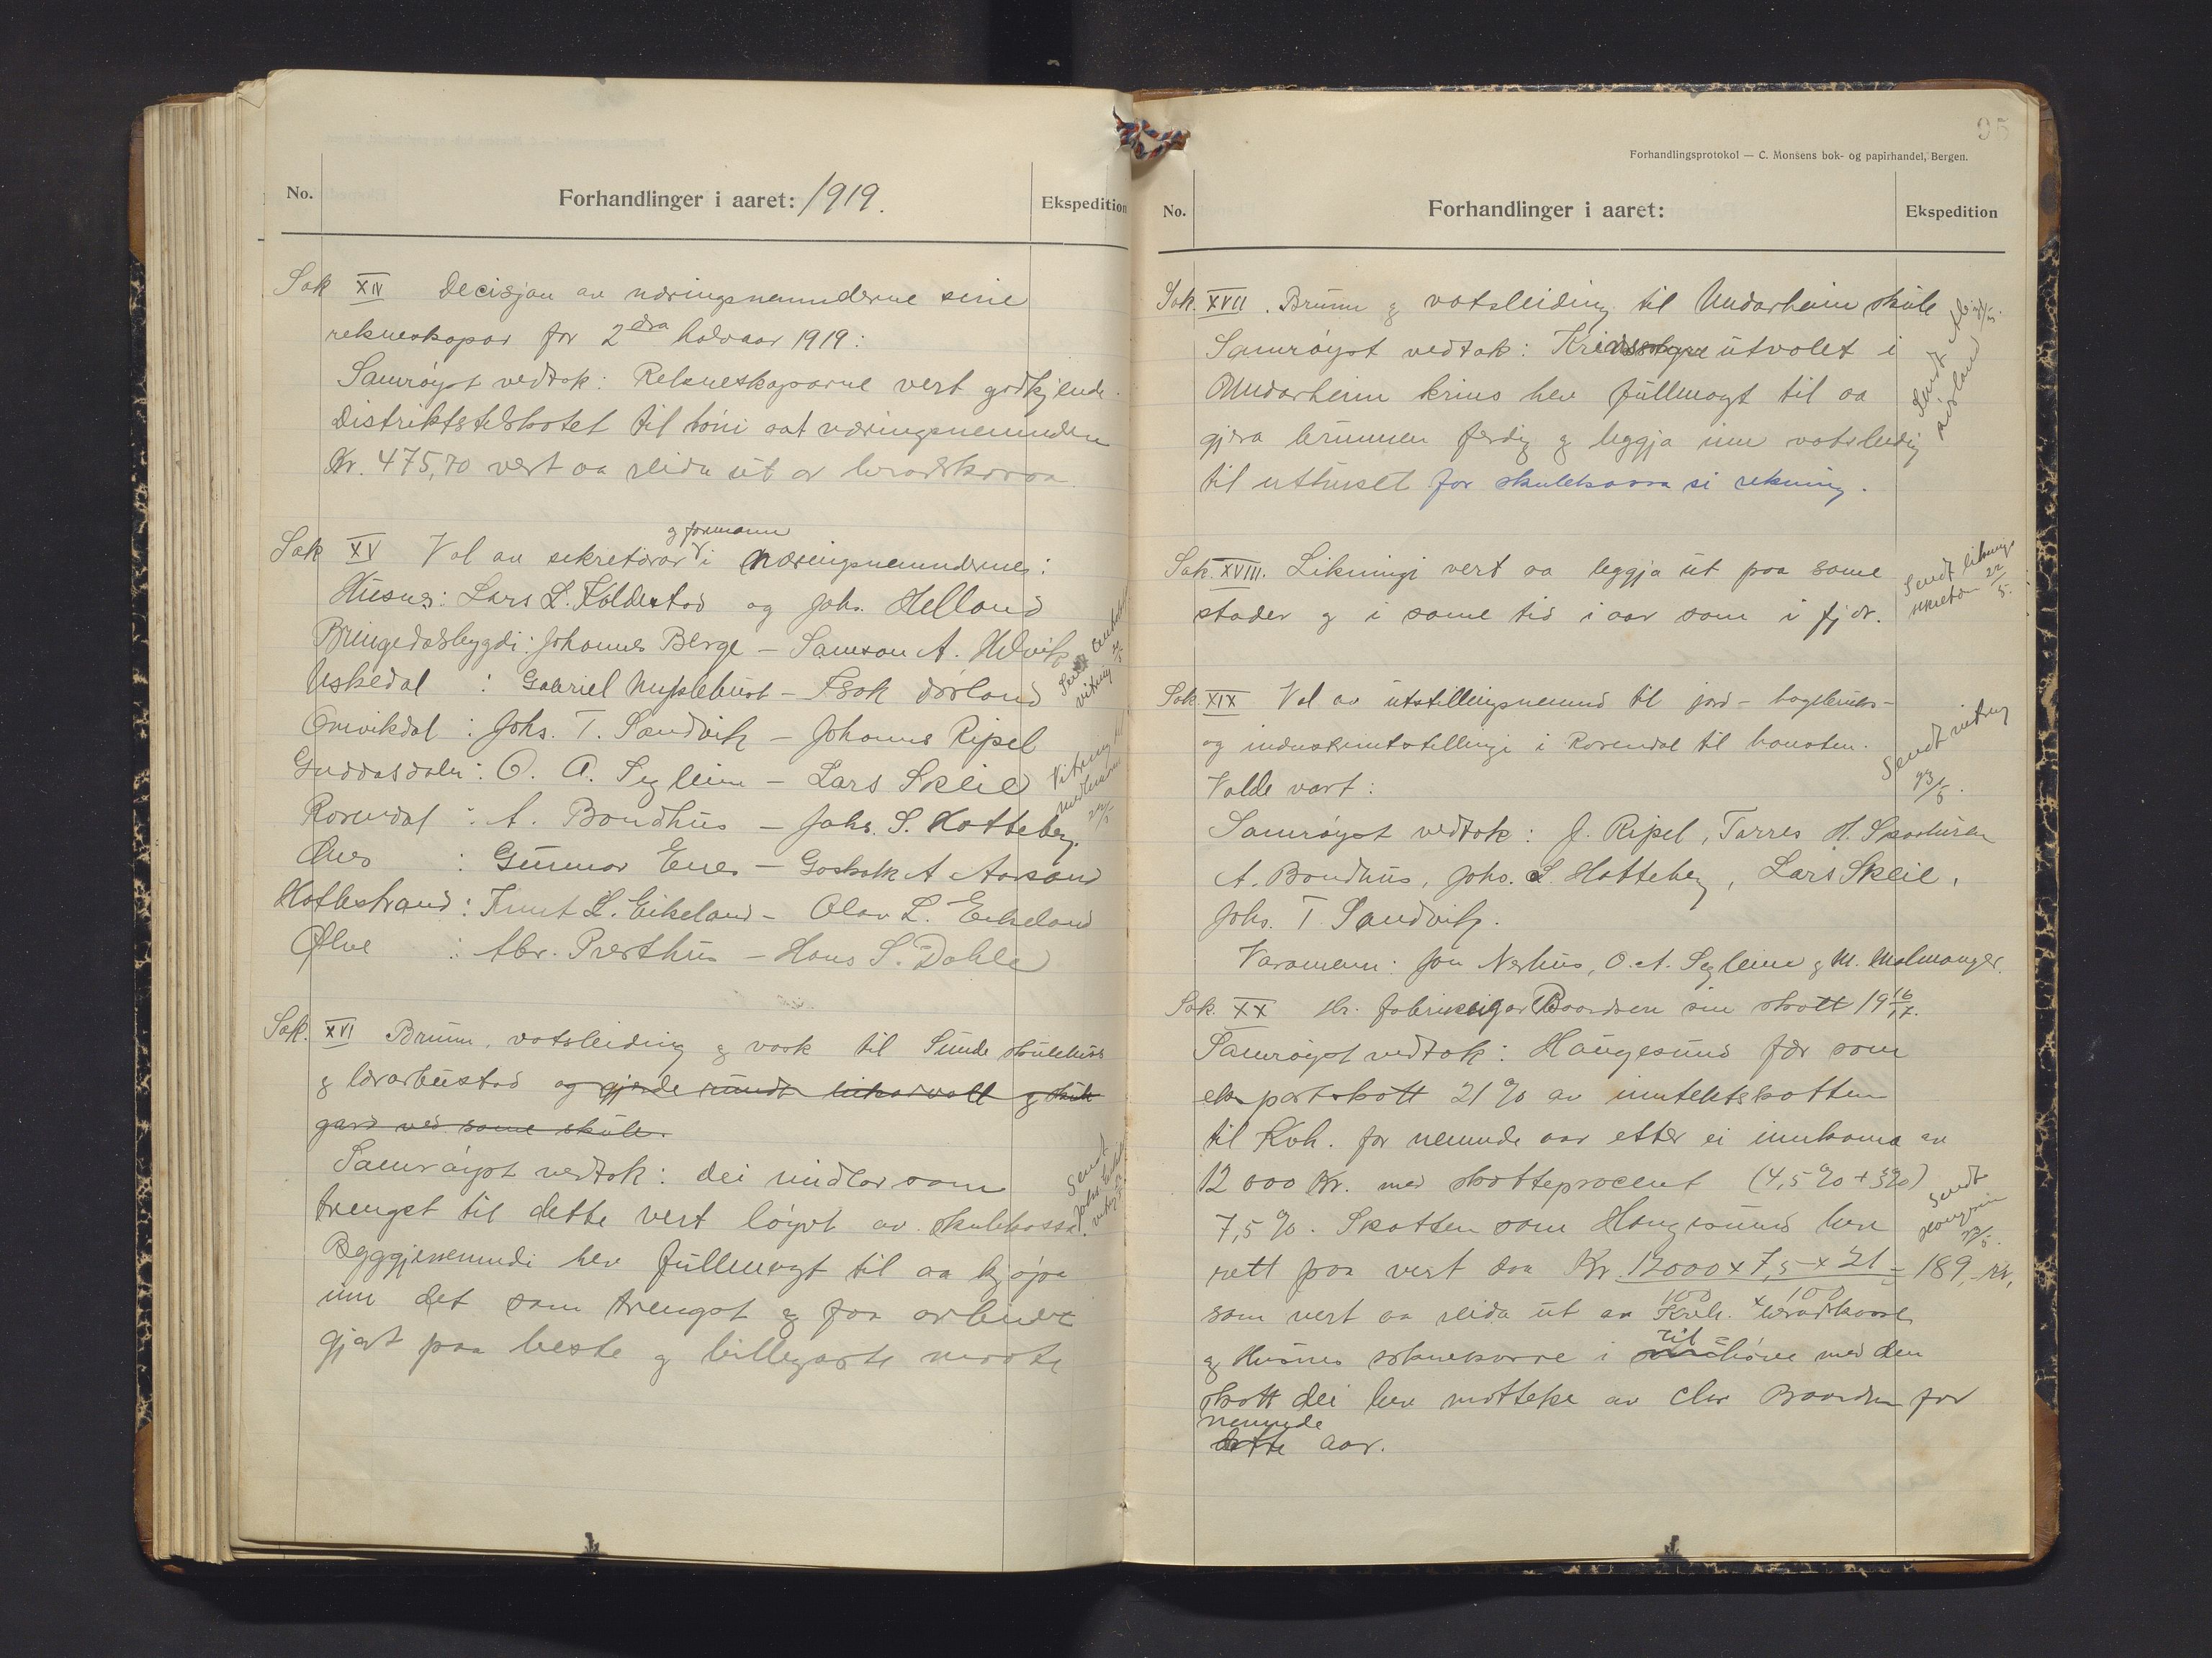 No.
Forhandlinger i aaret: 1919.
Ekspedition
Sak XIV Decisjon av næringsnemnderne sine
rekneskapar for 2dra halvaar 1919:
Samrøyst vedtok: Rekneskaparne vert godkjende.
Distriktstilskotet til aat næringsnemnden
Kr. 475,70 vert aa reida ut av heradskassa.
og formann
Sak XV Val av sekretærar i næringsnemndernes:
Husnes: Lars L. Koldestad og Johs. Helland
Bringedalsbygdi: Johannes Berge – Samson A. Helvik
Uskedal : Gabriel Myklebust – Isak Dørland
Omvikdal : Johs. T. Sandvik – Johannes Ripel
Guddasdaln: O. A. Seglem – Lars Skeie
Rosendal : A. Bondhus – Johs. S. Hatteberg.
Ænes : Gunnar Enes – Goskalk A Aarsand
Hatlestrand: Knut L. Eikeland – Olav L. Eikeland
Ølve : Abr. Presthus – Hans S. Dahle
Sendt
vitring
Vitring
medlemm
22/5
Sak. XVI Brunn, vatsleiding g vask til Sunde skulehus
g lærarbustad og gjerde rundt leikarvoll g skule
gard ved same skule.
Samrøyst vedtok: Dei midlar som
trengst til dette vert løyvt av skulekassa.
Byggjenemndi hev fullmagt til aa kjøpa
inn det som trengst g faa arbeidet
gjort paa beste g billegaste maate
Sendt
95
Forhandlingsprotokol — C. Monsens bok- og papirhandel, Bergen.
No.
Forhandlinger i aaret:
Ekspedition
Sak. XVII. Brunn g vatsleiding til Undarheim skule
Samrøyst vedtok: utvalet i
Undarheim krins hev fullmagt til aa
gjera brunnen ferdig g leggja inn vatsleidig
til uthuset for skulekassa si rekning.
Sendt
Sak. XVIII. Likningi vert aa leggja ut paa same
stader g i same tid i aar som i fjor.
Sendt liknings
sekretær 22/5.
Sak. XIX Val av utstillingsnemnd til jord- hagebruks-
og industriutstillingi i Rosendal til hausten.
Valde vart:
Samrøyst vedtok: J. Ripel, Torres H.
A. Bondhus, Johs. S. Hatteberg, Lars Skeie,
Johs. T. Sandvik.
Varamenn: Jon Nerhus, O. A. Seglem g M. Malmanger.
Sendt vitring
23/5.
Sak. XX Hr. fabrikeigar Baardsen sin skatt 19 16/17.
Samrøyst vedtok: Haugesund fær som
eksportskatt 21 % av inntektskatten
til Kvh. for nemnde aar etter ei innkoma av
12 000 Kr. med skatteprocent (4,5 % + 3%)
7,5 %. Skatten som Haugesund hev
rett paa vert daa Kr. 12000 x 7,5 x 21 = 189, kr.
100 x 100
som vert aa reida ut av Kvh. heradskasse
g Husnes soknekasse i til høve med den
skatt dei hev motteke av Chr Baardsen for
nemnde
dette aar.
Sendt